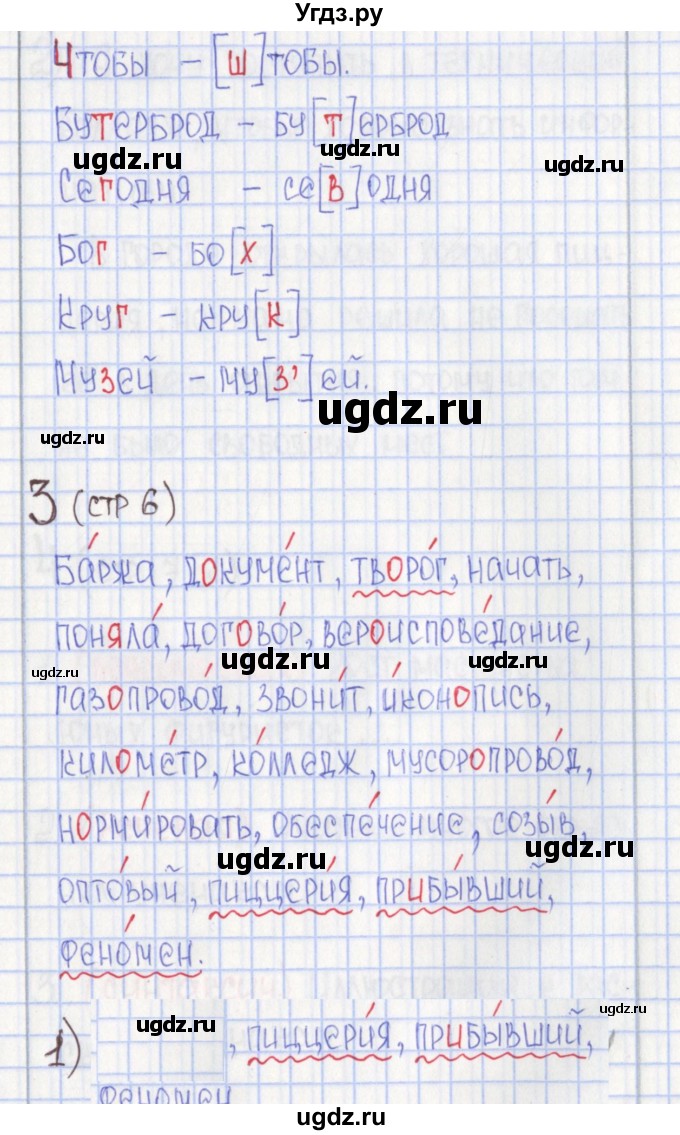 Угдз.ру
Чтобы – [ш]тобы.
Бутерброд – бу[т]ерброд
ugdz.ru ugdz.ru
Сегодня – се[в]одня
Бог – бо[х]
Круг – кру[к]
Музей – му[з']ей.
ugdz.ru
ugdz.ru
3 (стр 6)
Ба́ржа, докуме́нт, творо́г, начать,
поняла́, догово́р, вероиспове́дание,
ugdz.ru ugdz.ru ugdz.ru
газопрово́д, звони́т, и́конопись,
киломе́тр, ко́лледж, мусоропрово́д,
норми́ровать, обеспе́чение, созы́в,
ugdz.ru ugdz.ru
опто́вый, пиццери́я, прибы́вший,
фено́мен.
ugdz.ru ugdz.ru
1) , пиццери́я, прибы́вший,
феномен
ugdz.ru